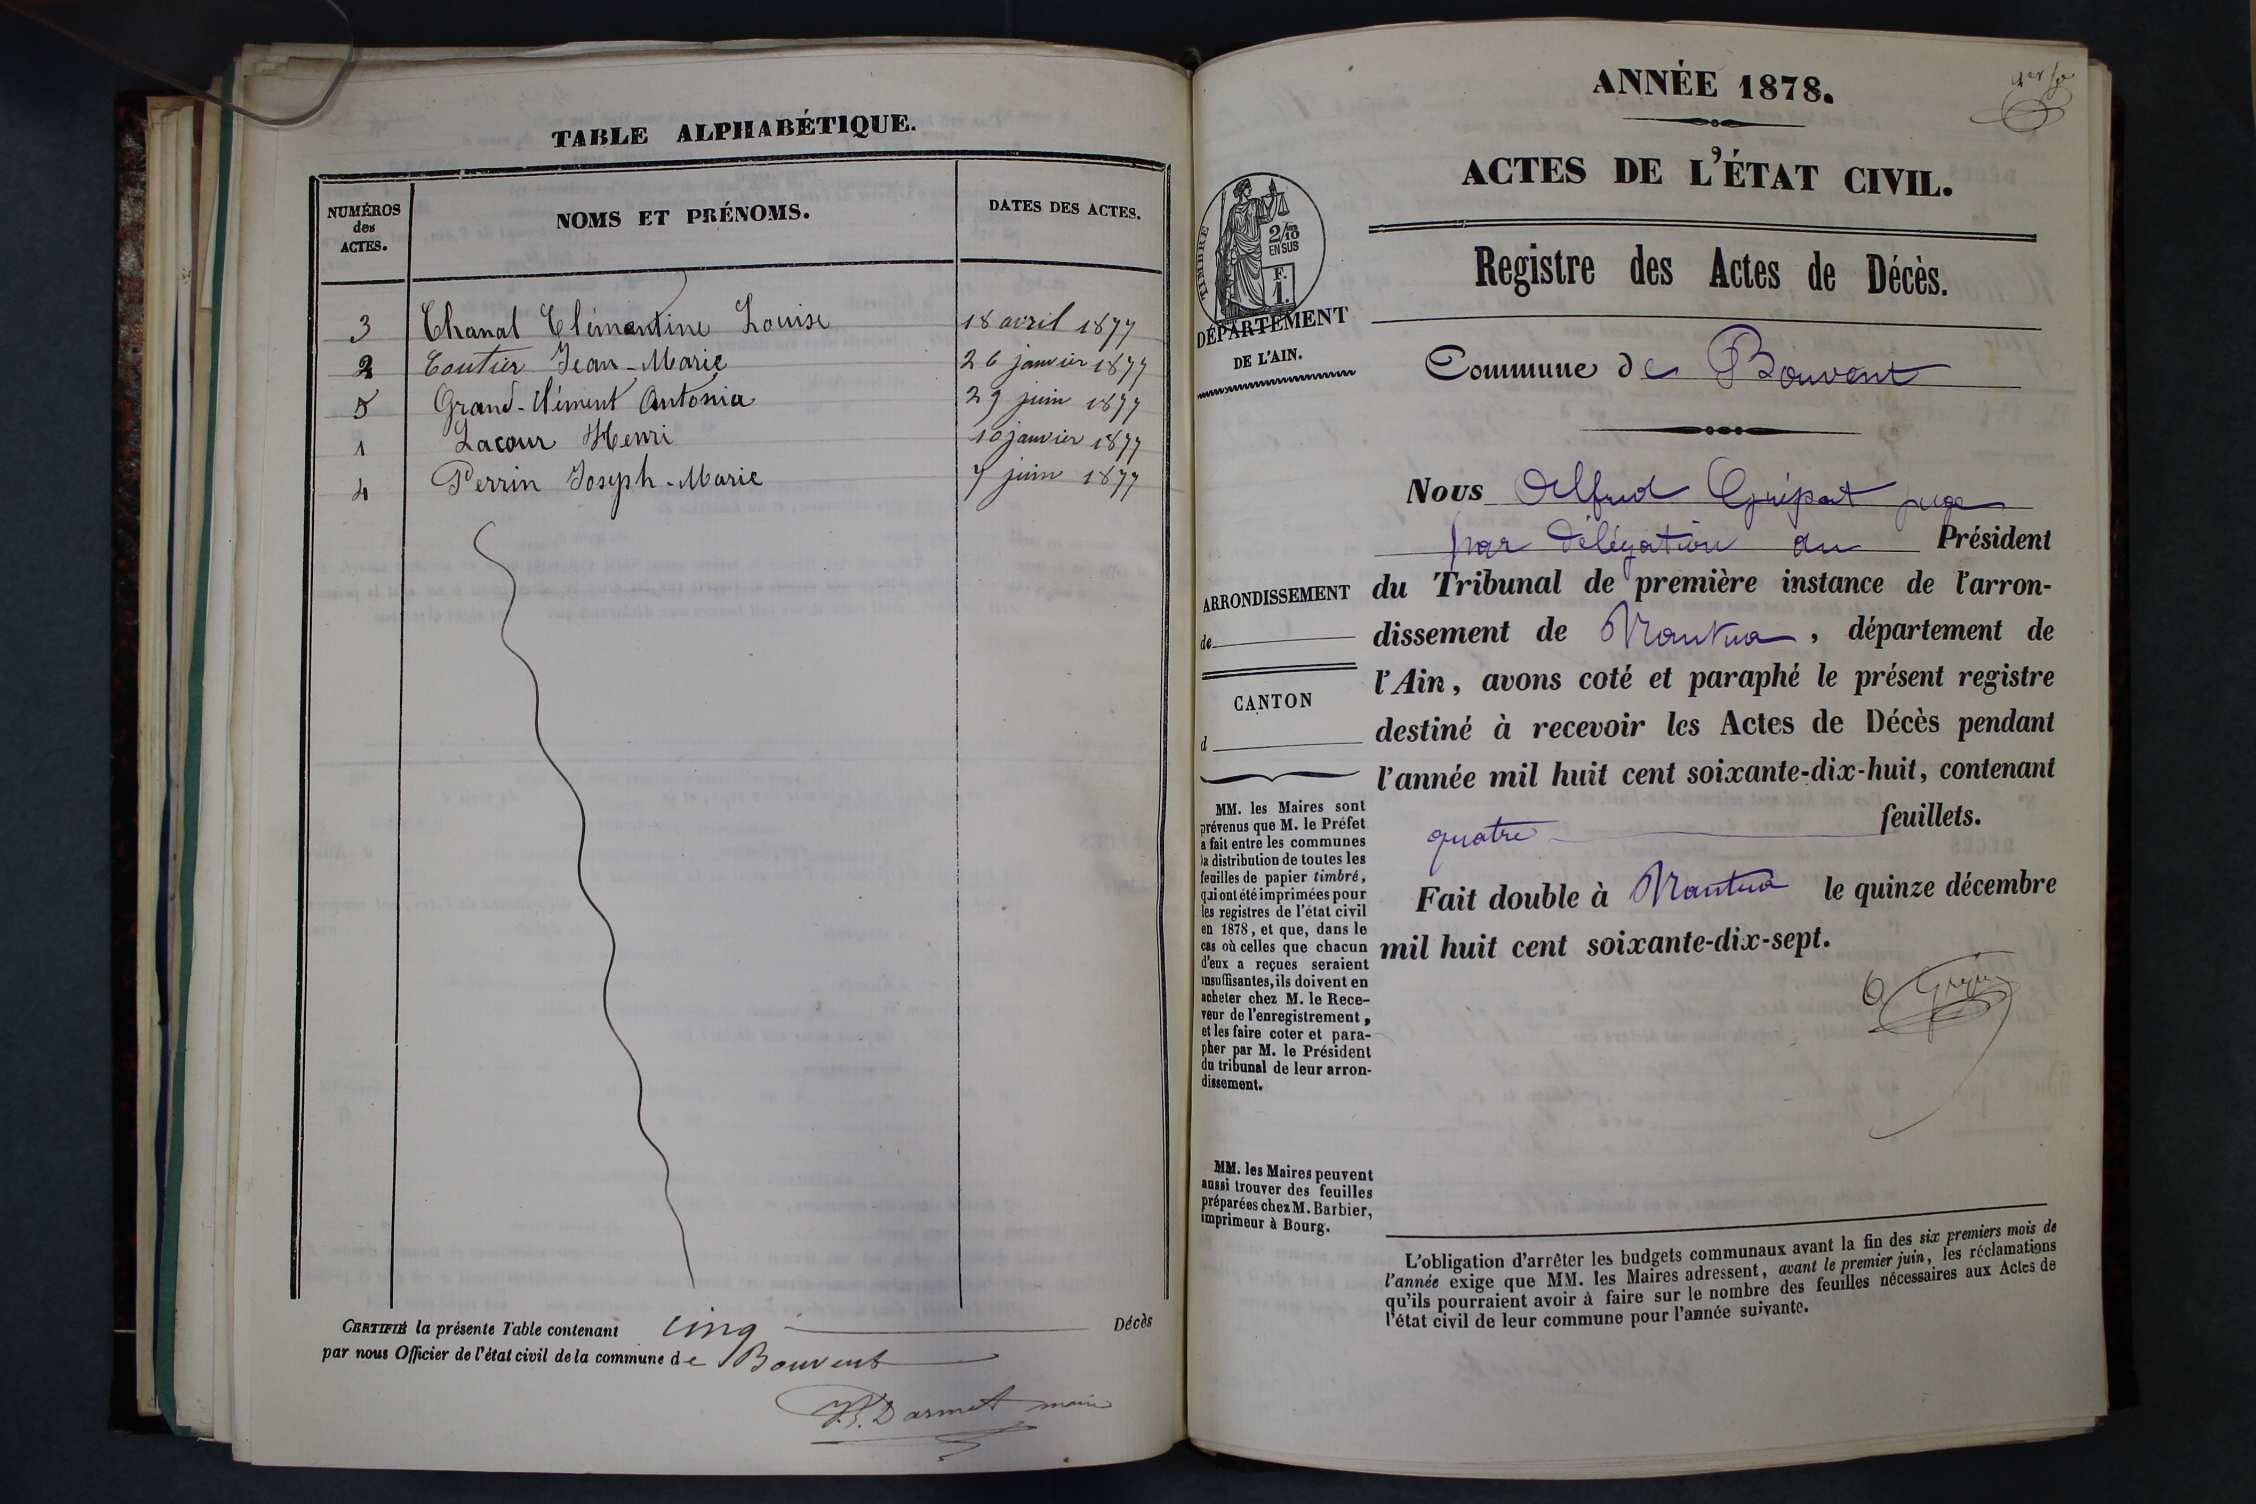 TABLE ALPHABÉTIQUE.
NUMÉROS
des
ACTES.
NOMS ET PRÉNOMS.
DATES DES ACTES.
3 Chanal Clémentine Louise 18 avril 1877
2 Coutier Jean-Marie 26 janvier 1877
5 Grand-Clément Antonia 29 juin 1877
1 Lacour Henri 10 janvier 1877
4 Perrin Joseph-Marie 7 juin 1877
CERTIFIÉ la présente Table contenant cinq Décès
par nous Officier de l'état civil de la commune de Bouvent
Darmet maire
ANNÉE 1878.
ACTES DE L'ÉTAT CIVIL.
TIMBRE
2/10
EN SUS
F.
1.
DÉPARTEMENT
DE L'AIN.
Registre des Actes de Décès.
Commune de Bouvent
Nous Alfred juge
par délégation du Président
du Tribunal de première instance de l'arron-
dissement de Nantua, département de
l'Ain, avons coté et paraphé le présent registre
destiné à recevoir les Actes de Décès pendant
l'année mil huit cent soixante-dix-huit, contenant
quatre feuillets.
Fait double à Nantua le quinze décembre
mil huit cent soixante-dix-sept.
ARRONDISSEMENT
de
CANTON
d
MM. les Maires sont
prévenus que M. le Préfet
a fait entre les communes
la distribution de toutes les
feuilles de papier timbré,
qui ont été imprimées pour
les registres de l'état civil
en 1878, et que, dans le
cas où celles que chacun
d'eux a reçues seraient
insuffisantes, ils doivent en
acheter chez M. le Rece-
veur de l'enregistrement,
et les faire coter et para-
pher par M. le Président
du tribunal de leur arron-
dissement.
MM. les Maires peuvent
aussi trouver des feuilles
préparées chez M. Barbier,
imprimeur à Bourg.
L'obligation d'arrêter les budgets communaux avant la fin des six premiers mois de
l'année exige que MM. les Maires adressent, avant le premier juin, les réclamations
qu'ils pourraient avoir à faire sur le nombre des feuilles nécessaires aux Actes de
l'état civil de leur commune pour l'année suivante.